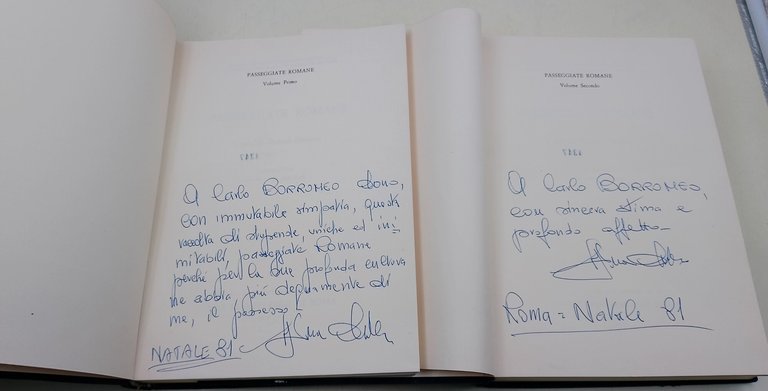 PASSEGGIATE ROMANE
Volume Primo
A Carlo BORROMEO dono,
con immutabile simpatia, questa
raccolta di stupende, uniche ed ini=
mitabili, passeggiate Romane
perché per la sua profonda cultura
ne abbia, più degnamente di
me, il possesso.
NATALE 81
PASSEGGIATE ROMANE
Volume Secondo
A Carlo BORROMEO,
con sincera stima e
profondo affetto.
Roma = Natale 81